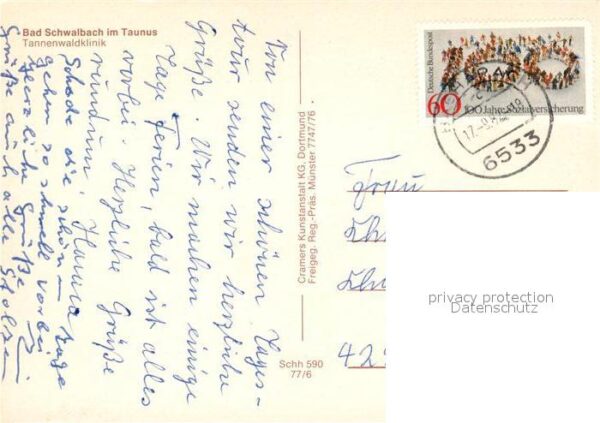 Bad Schwalbach im Taunus
Tannenwaldklinik
Von einer schönen Tages-
tour senden wir herzliche
Grüße. Wir machen einige
Tage Ferien, bald ist alles
vorbei. Herzliche Grüße
rundrum, Hanna
Schade die schönen Tage
gehen so schnell vorbei
herzliche Grüße
Grüße auch alle
Cramers Kunstanstalt KG, Dortmund
Freigeg. Reg.-Präs. Münster 7747/76
Schh 590
77/6
Deutsche Bundespost
60
100 Jahre Sozialversicherung
6533
Frau
42
privacy protection
Datenschutz